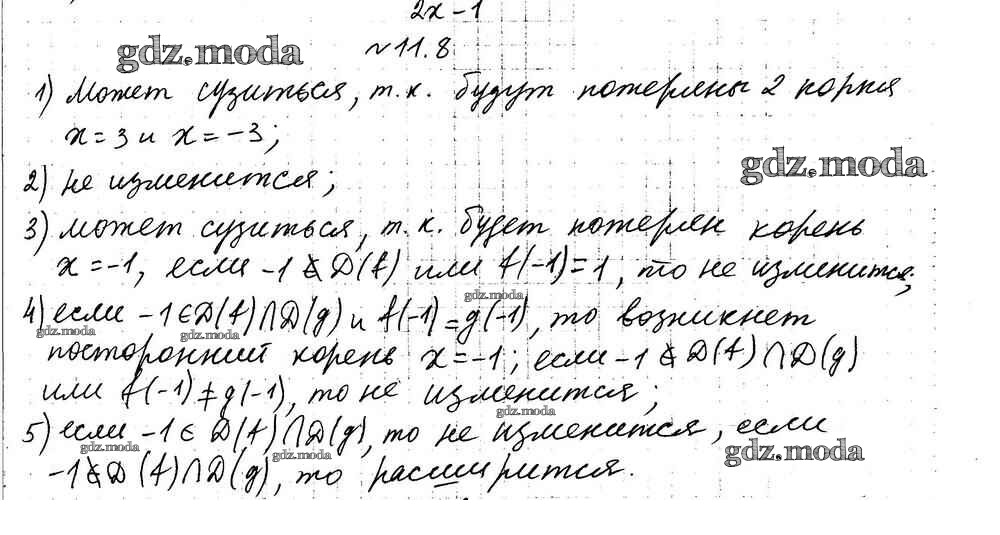 2x-1
gdz.moda
№11.8
1) Может сузиться, т.к. будут потеряны 2 корня
x=3 и x=-3;
gdz.moda
2) не изменится;
3) может сузиться, т.к. будет потерян корень
x=-1, если -1 ∉ D(f) или f(-1)=1, то не изменится;
gdz.moda
4) если -1 ∈ D(f)∩D(g) и f(-1)=g(-1), то возникнет
gdz.moda gdz.moda
посторонний корень x=-1; если -1 ∉ D(f)∩D(g)
или f(-1)≠g(-1), то не изменится;
gdz.moda
5) если -1 ∈ D(f)∩D(g), то не изменится, если
gdz.moda gdz.moda gdz.moda
-1 ∉ D(f)∩D(g), то расширится.